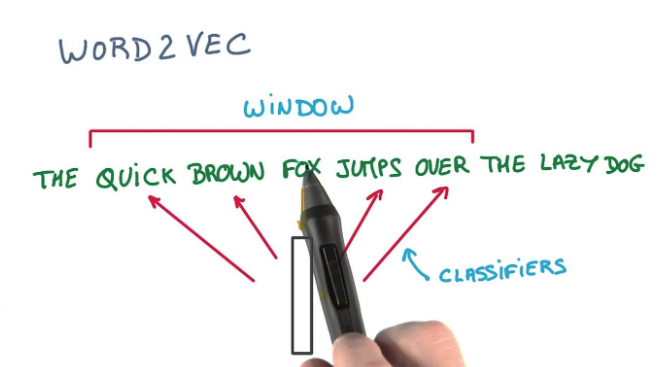 WORD2VEC
WINDOW
THE QUICK BROWN FOX JUMPS OVER THE LAZY DOG
CLASSIFIERS